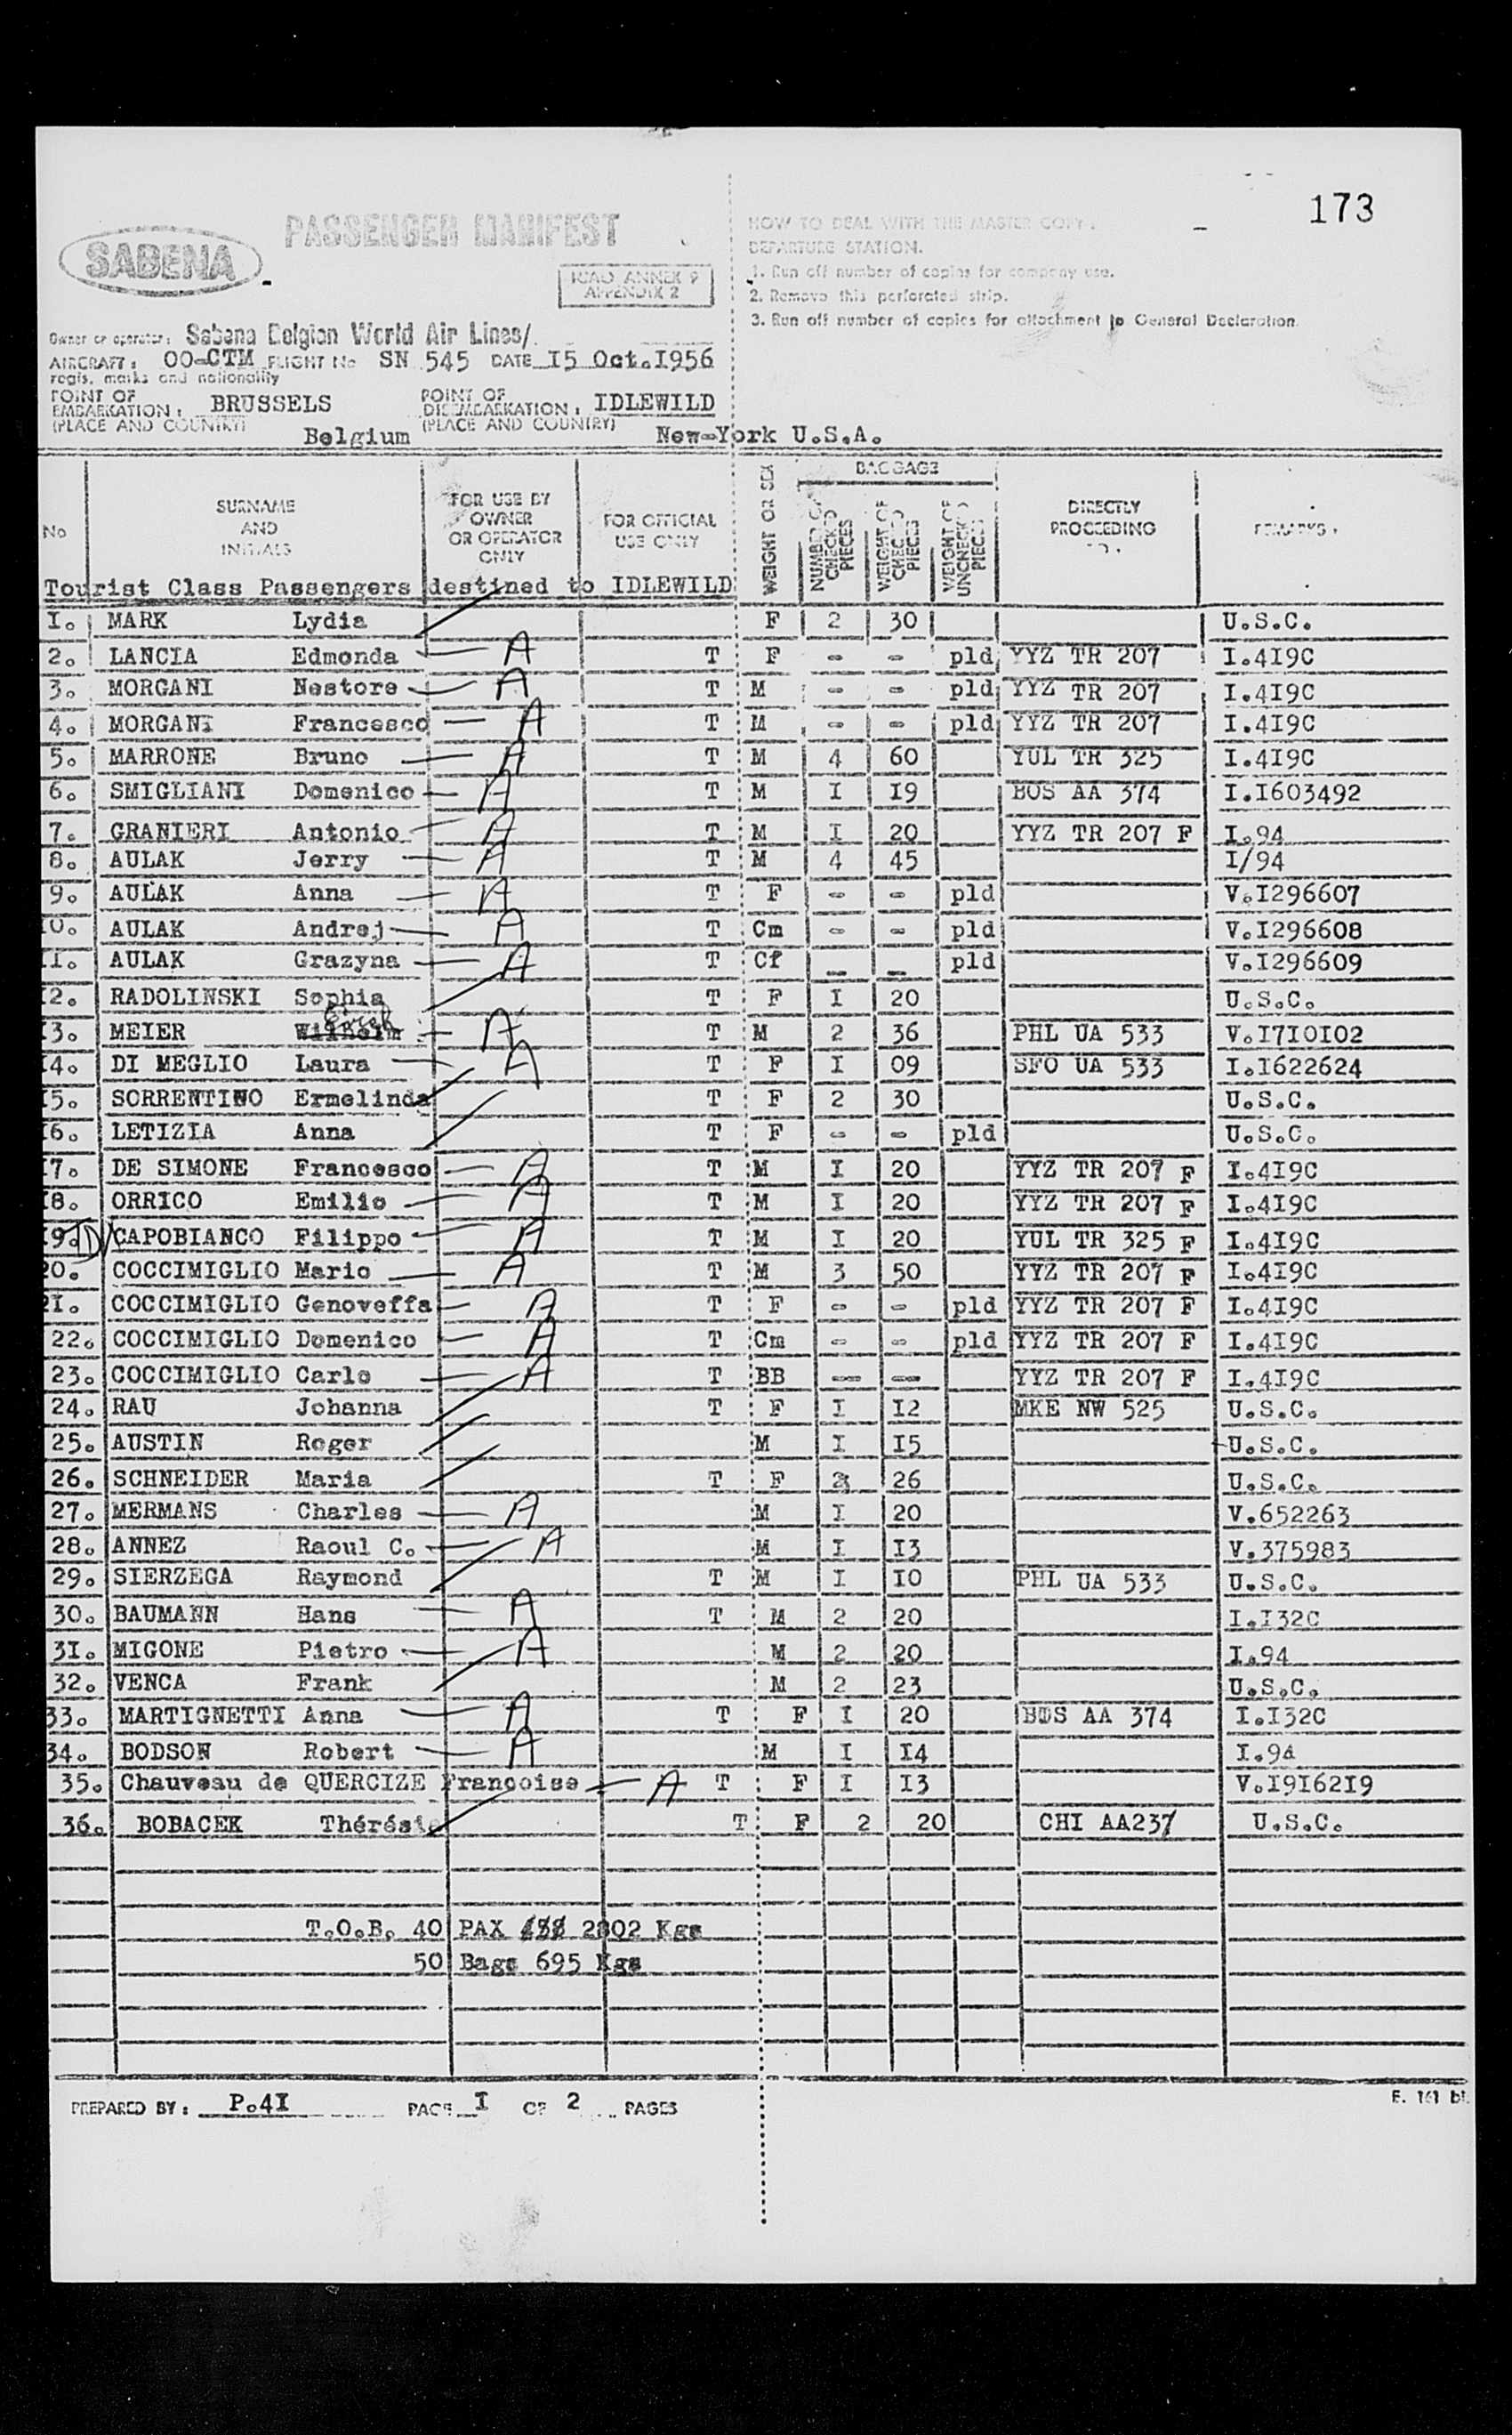 173
PASSENGER MANIFEST
SABENA
ICAO ANNEX 9
APPENDIX 2
HOW TO DEAL WITH THE MASTER COPY.
DEPARTURE STATION.
1. Run off number of copies for company use.
2. Remove this perforated strip.
3. Run off number of copies for attachment to General Declaration.
Owner or operator: Sabena Belgian World Air Lines/.
AIRCRAFT: OO-CTM FLIGHT No SN 545 DATE I5 Oct.I956
regis. marks and nationality
POINT OF EMBARKATION: BRUSSELS POINT OF DISEMBARKATION: IDLEWILD
(PLACE AND COUNTRY) Belgium (PLACE AND COUNTRY) New-York U.S.A.
No SURNAME AND INITIALS FOR USE BY OWNER OR OPERATOR ONLY FOR OFFICIAL USE ONLY WEIGHT OR SEX BAGGAGE NUMBER OF CHECKED PIECES WEIGHT OF CHECKED PIECES WEIGHT OF UNCHECKED PIECES DIRECTLY PROCEEDING TO. REMARKS.
Tourist Class Passengers destined to IDLEWILD
I. MARK Lydia F 2 30 U.S.C.
2. LANCIA Edmonda A T F - - pld YYZ TR 207 I.4I9C
3. MORGANI Nestore A T M - - pld YYZ TR 207 I.4I9C
4. MORGANI Francesco A T M - - pld YYZ TR 207 I.4I9C
5. MARRONE Bruno A T M 4 60 YUL TR 325 I.4I9C
6. SMIGLIANI Domenico A T M I I9 BOS AA 374 I.I603492
7. GRANIERI Antonio A T M I 20 YYZ TR 207 F I.94
8. AULAK Jerry A T M 4 45 I/94
9. AULAK Anna A T F - - pld V.I296607
I0. AULAK Andrej A T Cm - - pld V.I296608
II. AULAK Grazyna A T Cf - - pld V.I296609
I2. RADOLINSKI Sophia T F I 20 U.S.C.
I3. MEIER Wilhelm A T M 2 36 PHL UA 533 V.I7I0I02
I4. DI MEGLIO Laura A T F I 09 SFO UA 533 I.I622624
I5. SORRENTINO Ermelinda T F 2 30 U.S.C.
I6. LETIZIA Anna T F - - pld U.S.C.
I7. DE SIMONE Francesco A T M I 20 YYZ TR 207 F I.4I9C
I8. ORRICO Emilio A T M I 20 YYZ TR 207 F I.4I9C
I9. CAPOBIANCO Filippo A T M I 20 YUL TR 325 F I.4I9C
20. COCCIMIGLIO Mario A T M 3 50 YYZ TR 207 F I.4I9C
2I. COCCIMIGLIO Genoveffa A T F - - pld YYZ TR 207 F I.4I9C
22. COCCIMIGLIO Domenico A T Cm - - pld YYZ TR 207 F I.4I9C
23. COCCIMIGLIO Carlo A T BB -- -- YYZ TR 207 F I.4I9C
24. RAU Johanna T F I I2 MKE NW 525 U.S.C.
25. AUSTIN Roger M I I5 U.S.C.
26. SCHNEIDER Maria T F 2 26 U.S.C.
27. MERMANS Charles A M I 20 V.652263
28. ANNEZ Raoul C. A M I I3 V.375983
29. SIERZEGA Raymond T M I I0 PHL UA 533 U.S.C.
30. BAUMANN Hans A T M 2 20 I.I32C
3I. MIGONE Pietro A M 2 20 I.94
32. VENCA Frank M 2 23 U.S.C.
33. MARTIGNETTI Anna A T F I 20 BOS AA 374 I.I32C
34. BODSON Robert A M I I4 I.94
35. Chauveau de QUERCIZE Françoise A T F I I3 V.I9I62I9
36. BOBACEK Thérésie T F 2 20 CHI AA237 U.S.C.
T.O.B. 40 PAX 2802 Kgs
50 Bags 695 Kgs
PREPARED BY: P.4I PAGE I OF 2 PAGES